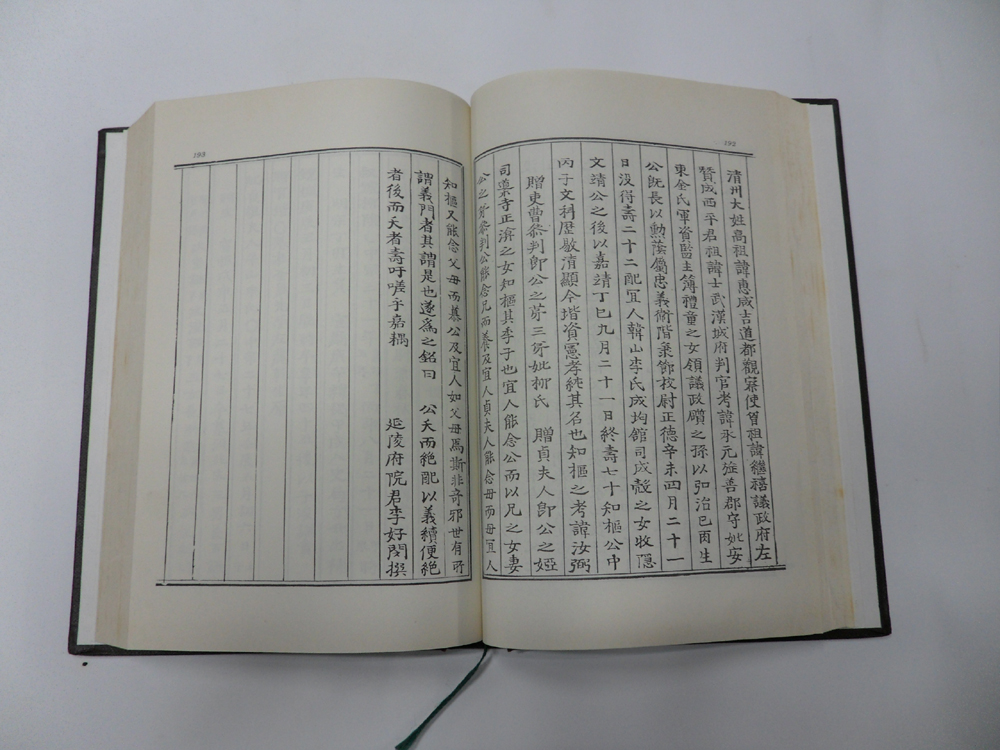 192
清州大姓高祖諱惠咸吉道都觀察使曾祖諱繼禧議政府左
贊成西平君祖諱士武漢城府判官考諱永元延善郡守妣安
東金氏軍資監主簿禮童之女領議政礩之孫以弘治己丙生
公旣長以勳蔭屬忠義衛階秉節校尉正德辛未四月二十一
日没得壽二十二配宜人韓山李氏成均館司成殼之女牧隱
文靖公之後以嘉靖丁巳九月二十一日終壽七十知樞公中
丙子文科歷敭淸顯今堦資憲孝純其名也知樞之考諱汝弼
贈吏曹叅判卽公之第三第妣柳氏 贈貞夫人卽公之婭
司䆃寺正濱之女知樞其季子也宜人能念公而以兄之女妻
公之第叅判公能念兄而養及宜人貞夫人能念毋而毋宜人
193
知樞又能念父毋而慕公及宜人如父毋焉斯非奇邪世有所
謂義門者其謂是也遂爲之銘曰 公夭而絶配以義續便絶
者後而夭者壽吁嗟乎嘉耦
延陵府院君李好閔撰